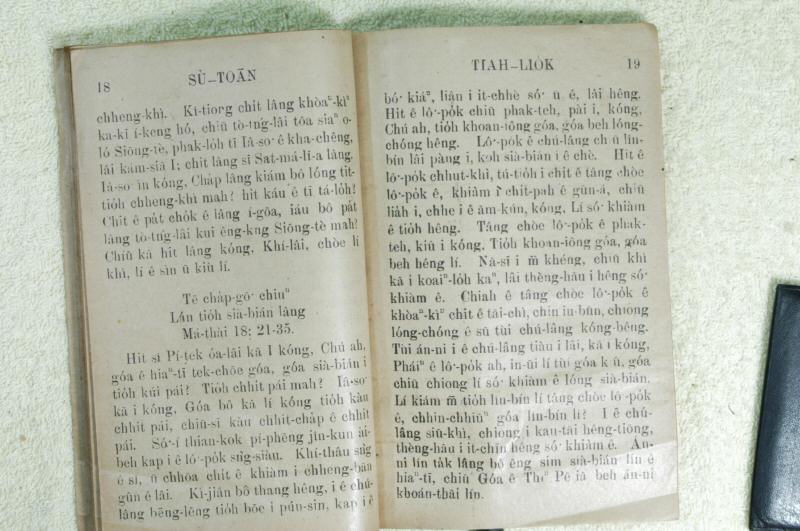 18 SÙ-TOĀN
chheng-khì. Kî-tiong chi̍t lâng khòaⁿ-kìⁿ
ka-kī í-keng hó, chiū tò-tńg-lâi tōa siaⁿ o-
ló Siōng-tè, phak-lo̍h tī Iâ-so͘ ê kha-chêng,
lâi kám-siā I; chit lâng sī Sat-má-lī-a lâng.
Iâ-so͘ ìn kóng, Cha̍p lâng kiám bô lóng tit-
tio̍h chheng-khì mah? hit káu ê tī tá-lo̍h?
Chit ê pa̍t cho̍k ê lâng í-gōa, iáu bô pa̍t
lâng tò-tńg-lâi kui êng-kng Siōng-tè mah?
Chiū kā hit lâng kóng, Khí-lâi, chòe lí
khì, lí ê sìn ū kiù lí.
Tē cha̍p-gō͘ chiuⁿ
Lán tio̍h sià-bián lâng
Má-thài 18: 21-35.
Hit sî Pí-tek óa-lâi kā I kóng, Chú ah,
góa ê hiaⁿ-tī tek-chōe góa, góa sià-bián i
tio̍h kúi pái? Tio̍h chhit pái mah? Iâ-so͘
kā i kóng, Góa bô kā lí kóng tio̍h kàu
chhit pái, chiū-sī kàu chhit-cha̍p ê chhit
pái. Só͘-í thian-kok pí-phēng jîn-kun ài-
beh kap i ê lô͘-po̍k sǹg-siàu. Khí-thâu sǹg
ê sî, ū chhōa chi̍t ê khiàm i chheng-bān
gûn ê lâi. Ki-jiân bô thang hêng, i ê chú-
lâng bēng-lēng tio̍h bōe i pún-sin, kap i ê
TIAH-LIO̍K 19
bó͘ kiáⁿ, liân i it-chhè só͘ ū ê, lâi hêng.
Hit ê lô͘-po̍k chiū phak-teh, pài i, kóng,
Chú ah, tio̍h khoan-iông góa, góa beh lóng-
chóng hêng. Lô͘-po̍k ê chú-lâng chū lîn-
bín lâi pàng i, koh sià-bián i ê chè. Hit ê
lô͘-po̍k chhut-khì, tú-tio̍h i chi̍t ê tâng chòe
lô͘-po̍k ê, khiàm i chi̍t-pah ê gûn-á, chiū
lia̍h i, chhe i ê ām-kún, kóng, Lí só͘ khiàm
ê tio̍h hêng. Tâng chòe lô͘-po̍k ê phak-
teh, kiû i kóng, Tio̍h khoan-iông góa, góa
beh hêng lí. Nā-sī i m̄ khéng, chiū khì
kā i koaiⁿ-lo̍h kaⁿ, lâi thèng-hāu i hêng só͘
khiàm ê. Chiah ê tâng chòe lô͘-po̍k ê
khòaⁿ-kìⁿ chit ê tāi-chì, chin iu-būn, chiong
lóng-chóng ê sū tùi chú-lâng kóng-bêng.
Tùi án-ni i ê chú-lâng tiàu i lâi, kā i kóng,
Pháiⁿ ê lô͘-po̍k ah, in-ūi lí tùi góa kiû, góa
chiū chiong lí só͘ khiàm ê lóng sià-bián.
Lí kiám m̄ tio̍h lîn-bín lí tâng chòe lô͘-po̍k
ê, chhin-chhiūⁿ góa lîn-bín lí? I ê chú-
lâng siū-khì, chiong i kau-tāi hêng-tiòng,
thèng-hāu i it-chīn hêng só͘ khiàm ê. Án-
ni lín ta̍k lâng bô ēng sim sià-bián lín ê
hiaⁿ-tī, chiū Góa ê Thiⁿ Pē iā beh án-ni
khoán-thāi lín.